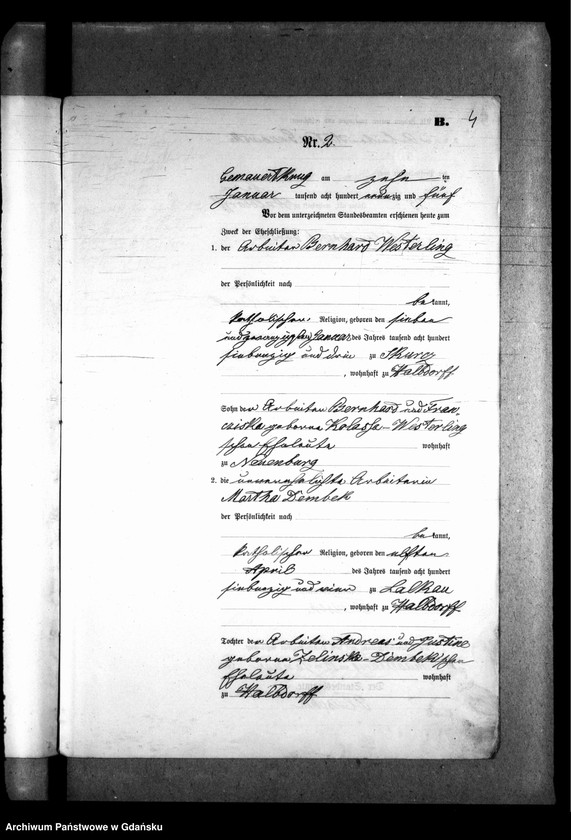 B. 4
Nr. 2.
am zehn ten
Januar tausend acht hundert neunzig und fünf
Vor dem unterzeichneten Standesbeamten erschienen heute zum
Zweck der Eheschließung:
1. der Arbeiter Bernhard Westerling
der Persönlichkeit nach
be kannt,
katholischer Religion, geboren den sieben
und zwanzigsten Januar des Jahres tausend acht hundert
siebenzig und drei zu Skurz
, wohnhaft zu Halbdorff
Sohn der Arbeiter Bernhard und Fran¬
ziska geborne Kolassa-Westerling
schen Eheleute wohnhaft
zu Neuenburg
2. die unverehelichte Arbeiterin
Martha Dembek
der Persönlichkeit nach
be kannt,
katholischer Religion, geboren den elften
April des Jahres tausend acht hundert
siebenzig und vier zu Lalkau
, wohnhaft zu Halbdorff
Tochter der Arbeiter Andreas und Justine
geborne Zelinska-Dembek'schen
Eheleute wohnhaft
zu Halbdorff
Archiwum Państwowe w Gdańsku